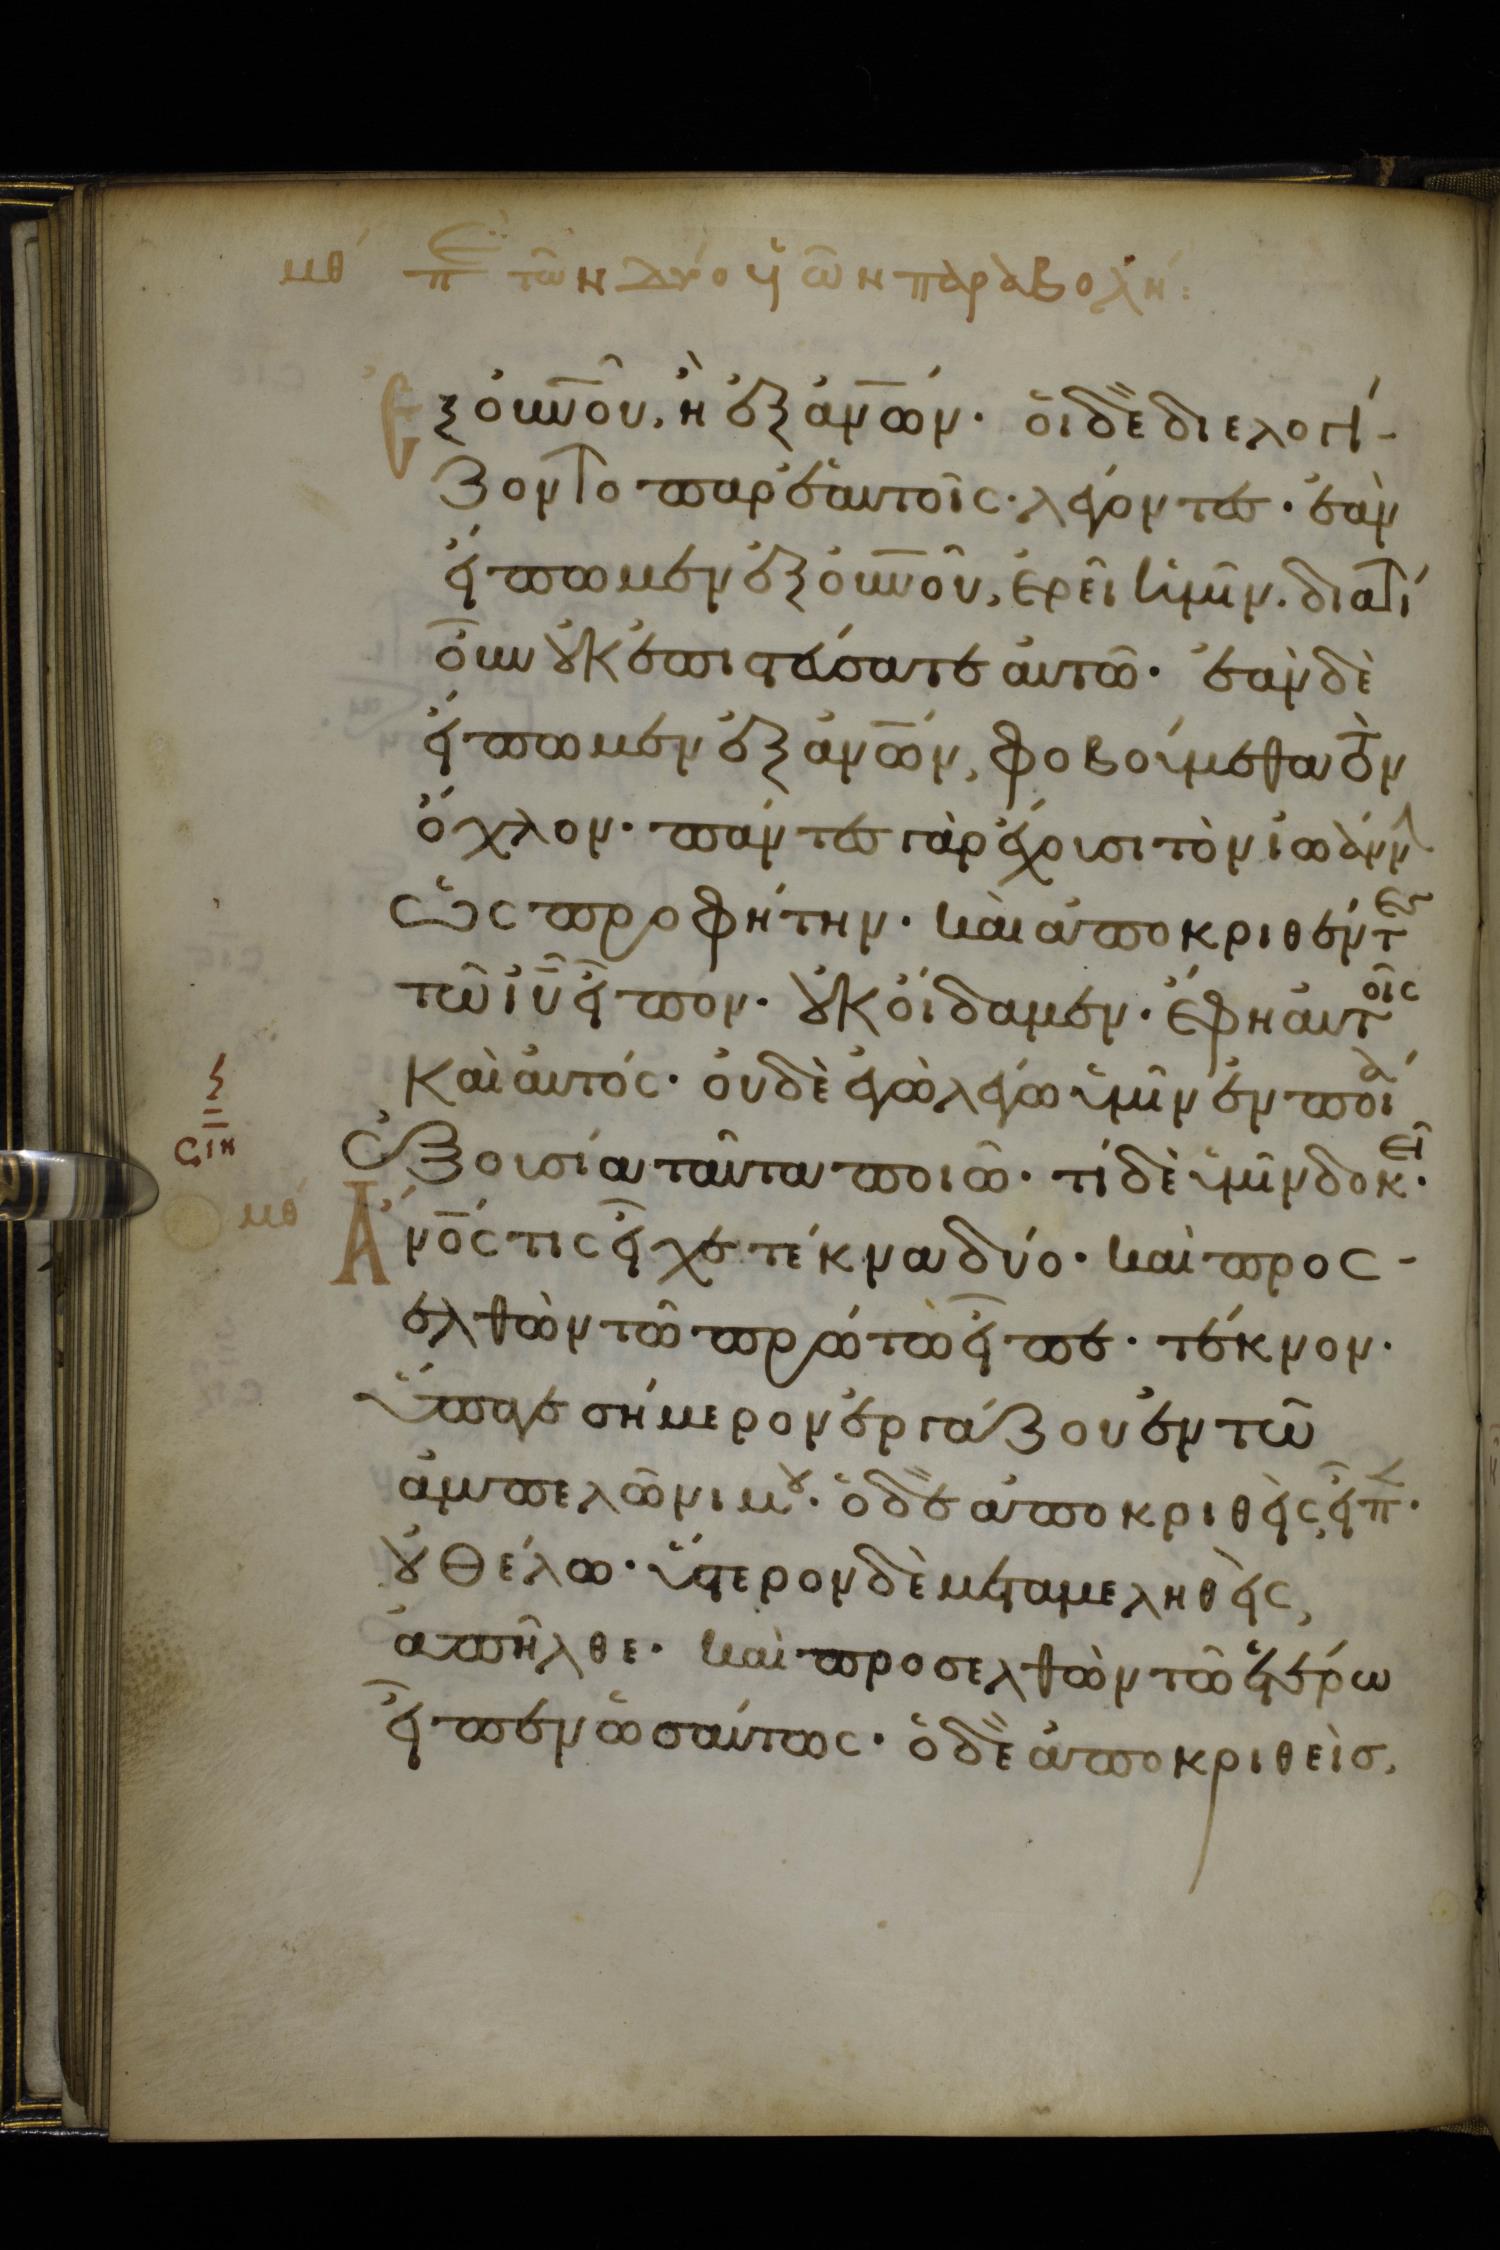 μθ΄ πε τῶν δύο υἱῶν παραβολή:
Ἐξ οὐνοῦ, ἢ ἐξ ἀνων· οἱ δὲ διελογί-
ζοντο παρ' ἑαυτοῖς· λέγοντες· ἐὰν
εἴπωμεν ἐξ οὐνοῦ, ἐρεῖ ἡμῖν· διατί
οὖν οὐκ ἐπιστεύσατε αὐτῶ· ἐὰν δὲ
εἴπωμεν ἐξ ἀνων, φοβούμεθα τὸν
ὄχλον· πάντες γὰρ ἔχουσι τὸν ἰωάνν
ὡς προφήτην· καὶ ἀποκριθέντες
τῶ ἰῦ εἶπον· οὐκ οἴδαμεν· ἔφη αὐτοῖς
καὶ αὐτός· οὐδὲ ἐγὼ λέγω ὑμῖν ἐν ποία
ἐξουσία ταῦτα ποιῶ· τί δὲ ὑμῖν δοκεῖ·
ξ
σιη
μθ΄
Ἄνος τις εἶχε τέκνα δύο· καὶ προσ-
ελθὼν τῶ πρώτω εἶπε· τέκνον·
ὕπαγε σήμερον ἐργάζου ἐν τῶ
ἀμπελῶνι μου· ὁ δὲ ἀποκριθεὶς, εἶπ·
οὐ θέλω· ὕστερον δὲ μεταμεληθεὶς,
ἀπῆλθε· καὶ προσελθὼν τῶ ἑτέρω
εἶπεν ὡσαύτως· ὁ δὲ ἀποκριθεὶσ,